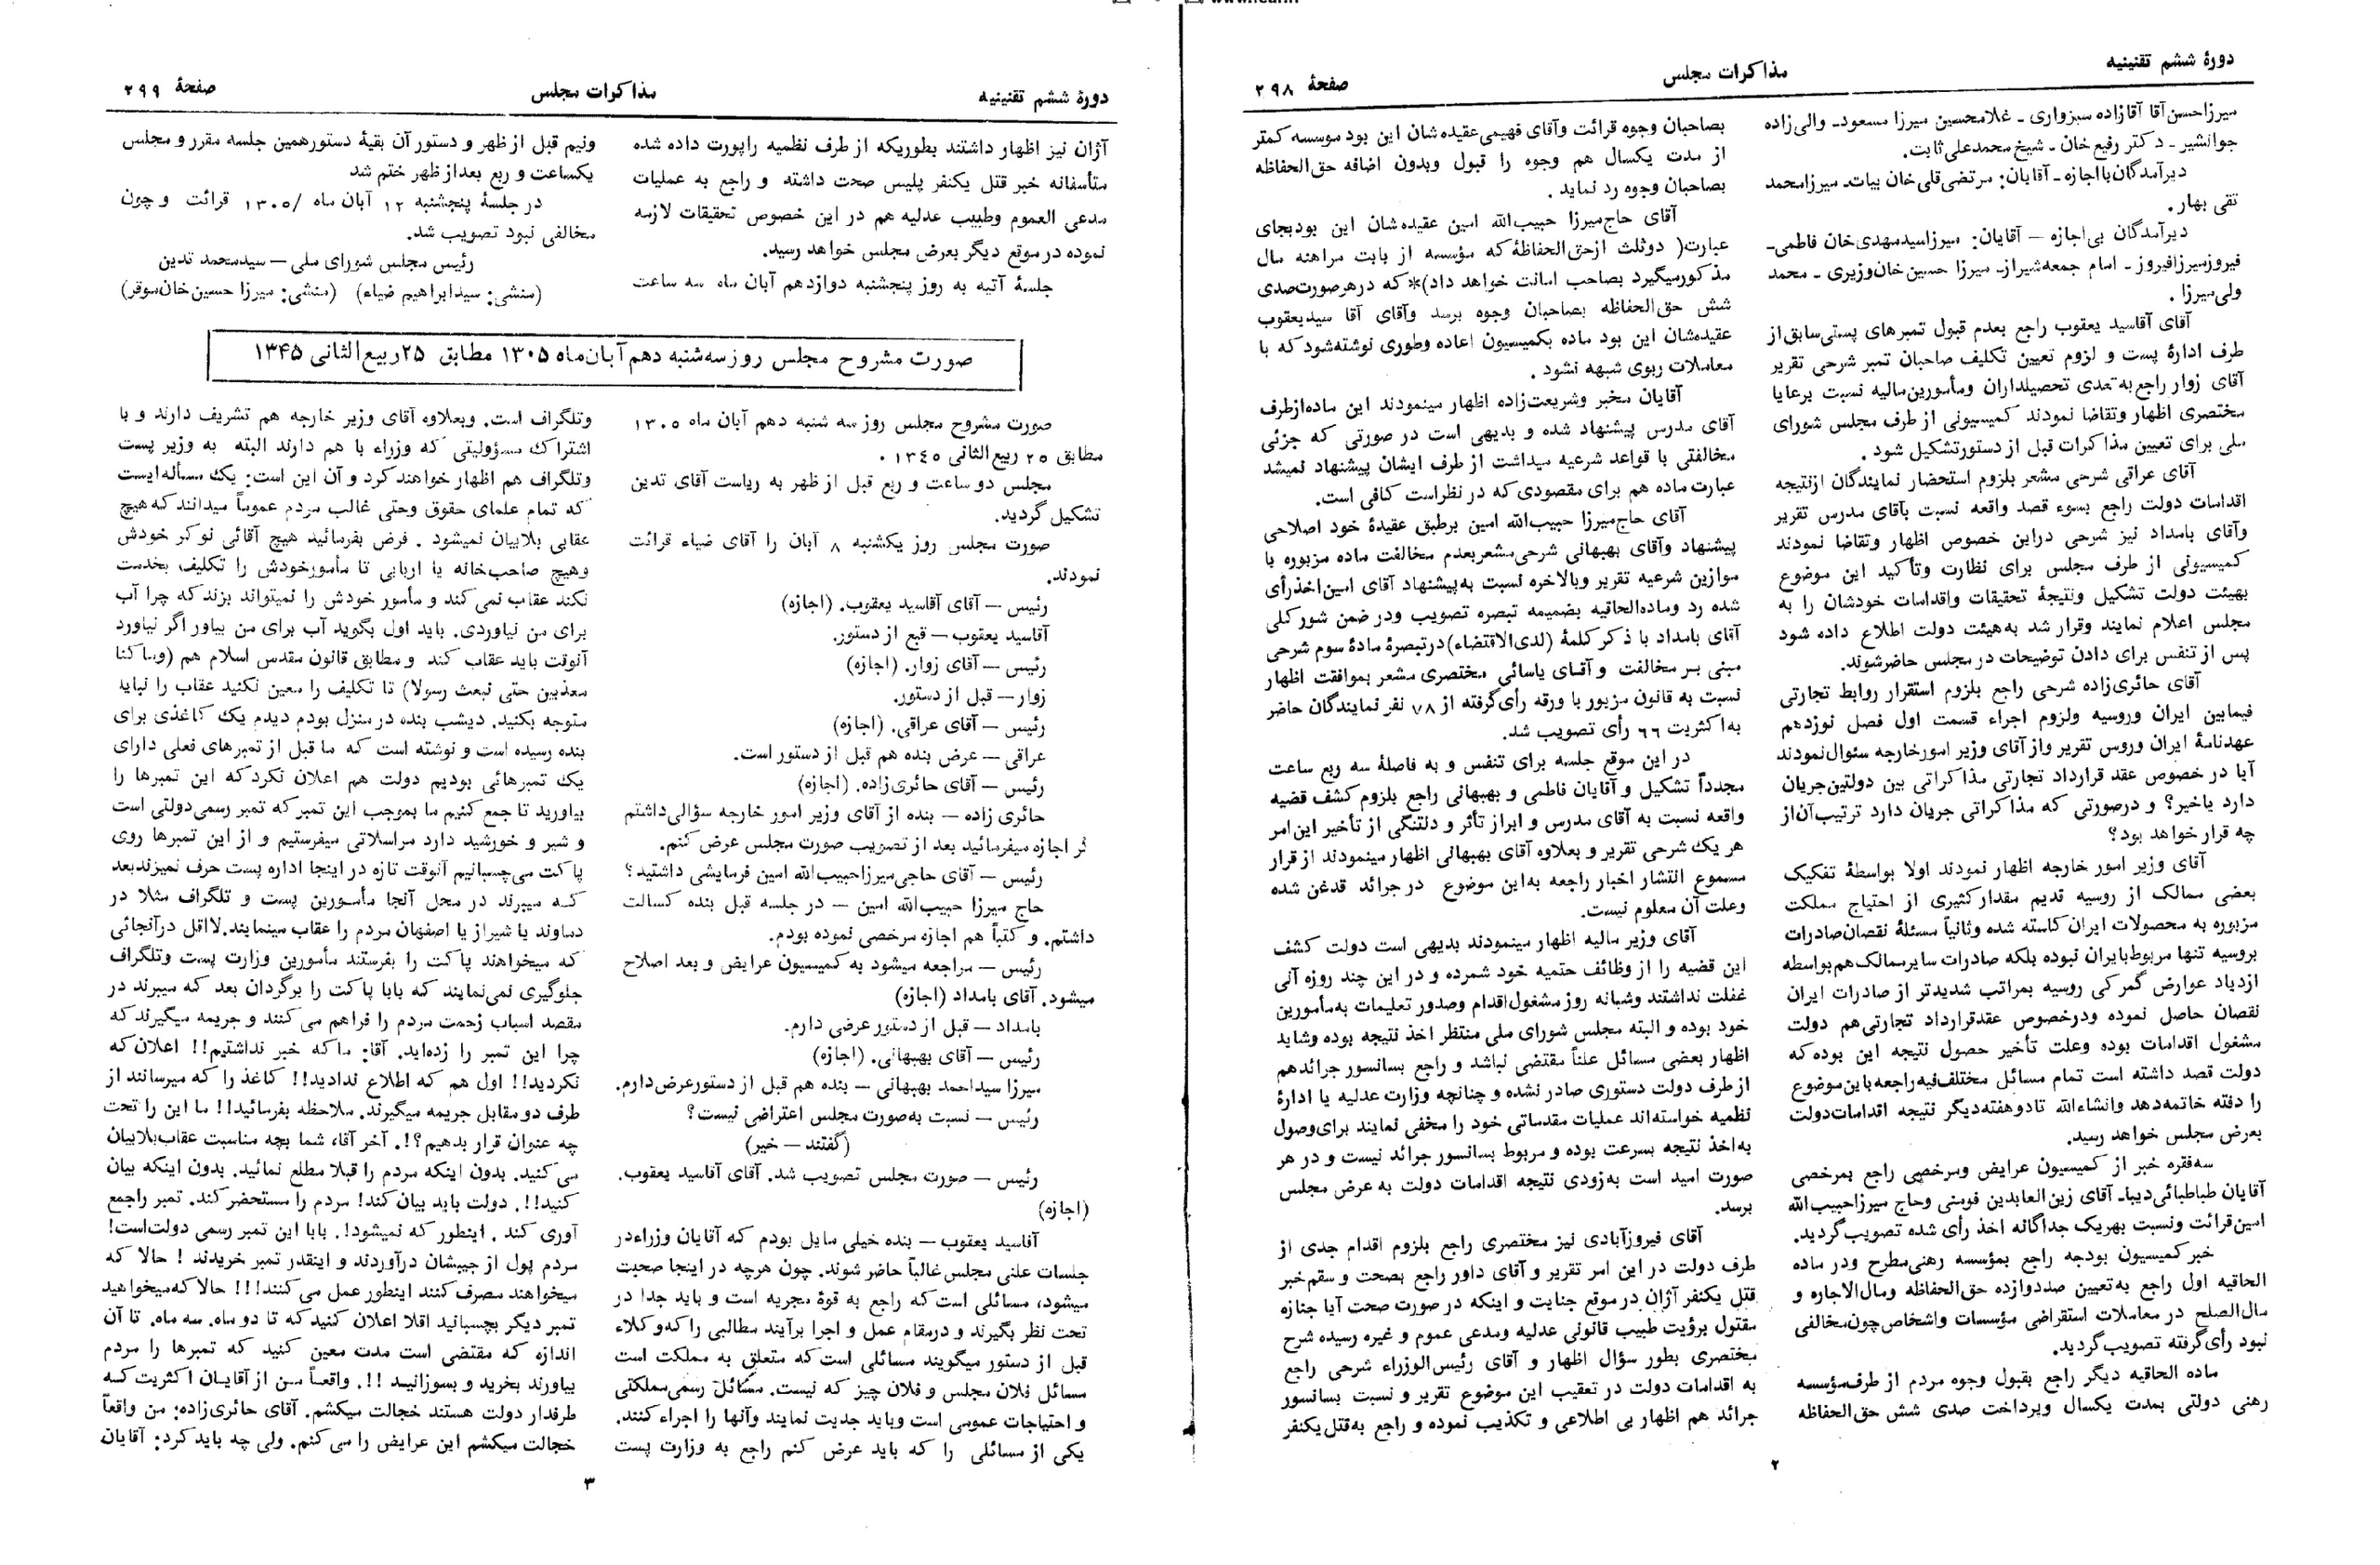 دورهٔ ششم تقنینیه
مذاکرات مجلس
صفحهٔ ۲۹۸
میرزاحسن‌آقا آقازاده سبزواری ـ غلامحسین میرزا مسعود ـ والی‌زاده
جوانشیر ـ دکتر رفیع خان ـ شیخ محمدعلی ثابت.
دیرآمدگان بااجازه ـ آقایان: مرتضی‌قلی‌خان بیات ـ میرزامحمد
تقی بهار.
دیرآمدگان بی‌اجازه ـ آقایان: میرزاسیدمهدی‌خان فاطمی ـ
فیروزمیرزافیروز ـ امام جمعه‌شیراز ـ میرزا حسین خان‌وزیری ـ محمد
ولی‌میرزا.
آقای آقاسید یعقوب راجع بعدم قبول تمبرهای پستی‌سابق از
طرف ادارهٔ پست و لزوم تعیین تکلیف صاحبان تمبر شرحی تقریر
آقای زوار راجع‌به‌تعدی تحصیلداران ومأمورین‌مالیه نسبت برعایا
مختصری اظهار وتقاضا نمودند کمیسیونی از طرف مجلس شورای
ملی برای تعیین مذاکرات قبل از دستورتشکیل شود.
آقای عراقی شرحی مشعر بلزوم استحضار نمایندگان ازنتیجه
اقدامات دولت راجع بسوء قصد واقعه نسبت بآقای مدرس تقریر
وآقای بامداد نیز شرحی دراین خصوص اظهار وتقاضا نمودند
کمیسیونی از طرف مجلس برای نظارت وتأکید این موضوع
بهیئت دولت تشکیل ونتیجهٔ تحقیقات واقدامات خودشان را به
مجلس اعلام نمایند وقرار شد به‌هیئت دولت اطلاع داده شود
پس از تنفس برای دادن توضیحات در مجلس حاضرشوند.
آقای حائری‌زاده شرحی راجع بلزوم استقرار روابط تجارتی
فیمابین ایران وروسیه ولزوم اجراء قسمت اول فصل نوزدهم
عهدنامهٔ ایران وروس تقریر واز آقای وزیر امورخارجه سئوال‌نمودند
آیا در خصوص عقد قرارداد تجارتی مذاکراتی بین دولتین‌جریان
دارد یاخیر؟ و درصورتی که مذاکراتی جریان دارد ترتیب‌آن‌از
چه قرار خواهد بود؟
آقای وزیر امور خارجه اظهار نمودند اولا بواسطهٔ تفکیک
بعضی ممالک از روسیه قدیم مقدارکثیری از احتیاج مملکت
مزبوره به محصولات ایران کاسته شده وثانیاً مسئلهٔ نقصان‌صادرات
بروسیه تنها مربوط‌بایران نبوده بلکه صادرات سایرممالک‌هم‌بواسطه
ازدیاد عوارض گمرکی روسیه بمراتب شدیدتر از صادرات ایران
نقصان حاصل نموده ودرخصوص عقدقرارداد تجارتی‌هم دولت
مشغول اقدامات بوده وعلت تأخیر حصول نتیجه این بوده‌که
دولت قصد داشته است تمام مسائل مختلف‌فیه‌راجعه‌باین‌موضوع
را دفته خاتمه‌دهد وانشاءالله تادوهفته‌دیگر نتیجه اقدامات‌دولت
بعرض مجلس خواهد رسید.
سه‌فقره خبر از کمیسیون عرایض ومرخصی راجع بمرخصی
آقایان طباطبائی‌دیبا ـ آقای زین‌العابدین فومنی وحاج میرزاحبیب‌الله
امین‌قرائت ونسبت بهریک جداگانه اخذ رأی شده تصویب‌گردید.
خبرکمیسیون بودجه راجع بمؤسسه رهنی‌مطرح ودر ماده
الحاقیه اول راجع به‌تعیین صددوازده حق‌الحفاظه ومال‌الاجاره و
مال‌الصلح در معاملات استقراضی مؤسسات واشخاص‌چون‌مخالفی
نبود رأی‌گرفته تصویب‌گردید.
ماده الحاقیه دیگر راجع بقبول وجوه مردم از طرف‌مؤسسه
رهنی دولتی بمدت یکسال وپرداخت صدی شش حق‌الحفاظه
بصاحبان وجوه قرائت وآقای فهیمی‌عقیده‌شان این بود موسسه کمتر
از مدت یکسال هم وجوه را قبول وبدون اضافه حق‌الحفاظه
بصاحبان وجوه رد نماید.
آقای حاج‌میرزا حبیب‌الله امین عقیده‌شان این بودبجای
عبارت( دوثلث ازحق‌الحفاظهٔ‌که مؤسسه از بابت مراهنه سال
مذکورمیگیرد بصاحب امانت خواهد داد)*که درهرصورت‌صدی
شش حق‌الحفاظه بصاحبان وجوه برسد وآقای آقا سیدیعقوب
عقیده‌شان این بود ماده بکمیسیون اعاده وطوری نوشته‌شودکه با
معاملات ربوی شبهه نشود.
آقایان مخبر وشریعت‌زاده اظهار مینمودند این ماده‌ازطرف
آقای مدرس پیشنهاد شده و بدیهی است در صورتی که جزئی
مخالفتی با قواعد شرعیه میداشت از طرف ایشان پیشنهاد نمیشد
عبارت ماده هم برای مقصودی‌که در نظراست کافی است.
آقای حاج‌میرزا حبیب‌الله امین برطبق عقیدهٔ خود اصلاحی
پیشنهاد وآقای بهبهانی شرحی‌مشعربعدم مخالفت ماده مزبوره با
موازین شرعیه تقریر وبالاخره نسبت به‌پیشنهاد آقای امین‌اخذرأی
شده رد وماده‌الحاقیه بضمیمه تبصره تصویب ودر ضمن شورکلی
آقای بامداد با ذکر کلمهٔ (لدی‌الاقتضاء) درتبصرهٔ مادهٔ سوم شرحی
مبنی بر مخالفت و آقای یاسائی مختصری مشعر بموافقت اظهار
نسبت به قانون مزبور با ورقه رأی‌گرفته از ۷۸ نفر نمایندگان حاضر
به‌اکثریت ۶۶ رأی تصویب شد.
در این موقع جلسه برای تنفس و به فاصلهٔ سه ربع ساعت
مجدداً تشکیل و آقایان فاطمی و بهبهانی راجع بلزوم کشف قضیه
واقعه نسبت به آقای مدرس و ابراز تأثر و دلتنگی از تأخیر این‌امر
هر یک شرحی تقریر و بعلاوه آقای بهبهانی اظهار مینمودند از قرار
مسموع انتشار اخبار راجعه به‌این موضوع در جرائد قدغن شده
وعلت آن معلوم نیست.
آقای وزیر مالیه اظهار مینمودند بدیهی است دولت کشف
این قضیه را از وظائف حتمیه خود شمرده و در این چند روزه آنی
غفلت نداشتند وشبانه روز مشغول‌اقدام وصدور تعلیمات به‌مأمورین
خود بوده و البته مجلس شورای ملی منتظر اخذ نتیجه بوده وشاید
اظهار بعضی مسائل علناً مقتضی نباشد و راجع بسانسور جرائدهم
ازطرف دولت دستوری صادر نشده و چنانچه وزارت عدلیه یا ادارهٔ
نظمیه خواسته‌اند عملیات مقدماتی خود را مخفی نمایند برای‌وصول
به‌اخذ نتیجه بسرعت بوده و مربوط بسانسور جرائد نیست و در هر
صورت امید است به‌زودی نتیجه اقدامات دولت به عرض مجلس
برسد.
آقای فیروزآبادی نیز مختصری راجع بلزوم اقدام جدی از
طرف دولت در این امر تقریر و آقای داور راجع بصحت و سقم خبر
قتل یکنفر آژان در موقع جنایت و اینکه در صورت صحت آیا جنازه
مقتول برؤیت طبیب قانونی عدلیه ومدعی عموم و غیره رسیده شرح
مختصری بطور سؤال اظهار و آقای رئیس‌الوزراء شرحی راجع
به اقدامات دولت در تعقیب این موضوع تقریر و نسبت بسانسور
جرائد هم اظهار بی اطلاعی و تکذیب نموده و راجع به‌قتل‌یکنفر
۲
دورهٔ ششم تقنینیه
مذاکرات مجلس
صفحهٔ ۲۹۹
آژان نیز اظهار داشتند بطوریکه از طرف نظمیه راپورت داده شده
متأسفانه خبر قتل یکنفر پلیس صحت داشته و راجع به عملیات
مدعی العموم وطبیب عدلیه هم در این خصوص تحقیقات لازمه
نموده در موقع دیگر بعرض مجلس خواهد رسید.
جلسهٔ آتیه به روز پنجشنبه دوازدهم آبان ماه سه ساعت
ونیم قبل از ظهر و دستور آن بقیهٔ دستورهمین جلسه مقرر و مجلس
یکساعت و ربع بعداز ظهر ختم شد
در جلسهٔ پنجشنبه ۱۲ آبان ماه /۱۳۰۵ قرائت و چون
مخالفی نبود تصویب شد.
رئیس مجلس شورای ملی ـ سیدمحمد تدین
(منشی: سیدابراهیم ضیاء) (منشی: میرزا حسین‌خان‌موقر)
صورت مشروح مجلس روز سه‌شنبه دهم آبان‌ماه ۱۳۰۵ مطابق ۲۵ ربیع‌الثانی ۱۳۴۵
صورت مشروح مجلس روز سه شنبه دهم آبان ماه ۱۳۰۵
مطابق ۲۵ ربیع‌الثانی ۱۳۴۵.
مجلس دو ساعت و ربع قبل از ظهر به ریاست آقای تدین
تشکیل گردید.
صورت مجلس روز یکشنبه ۸ آبان را آقای ضیاء قرائت
نمودند.
رئیس ـ آقای آقاسید یعقوب. (اجازه)
آقاسید یعقوب ـ قبع از دستور.
رئیس ـ آقای زوار. (اجازه)
زوار ـ قبل از دستور.
رئیس ـ آقای عراقی. (اجازه)
عراقی ـ عرض بنده هم قبل از دستور است.
رئیس ـ آقای حائری‌زاده. (اجازه)
حائری زاده ـ بنده از آقای وزیر امور خارجه سؤالی‌داشتم
گر اجازه میفرمائید بعد از تصویب صورت مجلس عرض کنم.
رئیس ـ آقای حاجی‌میرزاحبیب‌الله امین فرمایشی داشتید؟
حاج میرزا حبیب‌الله امین ـ در جلسه قبل بنده کسالت
داشتم. و کتباً هم اجازه مرخصی نموده بودم.
رئیس ـ مراجعه میشود به کمیسیون عرایض و بعد اصلاح
میشود. آقای بامداد (اجازه)
بامداد ـ قبل از دستور عرضی دارم.
رئیس ـ آقای بهبهانی. (اجازه)
میرزا سیداحمد بهبهانی ـ بنده هم قبل از دستورعرض‌دارم.
رئیس ـ نسبت به‌صورت مجلس اعتراضی نیست؟
(گفتند ـ خیر)
رئیس ـ صورت مجلس تصویب شد. آقای آقاسید یعقوب.
(اجازه)
آقاسید یعقوب ـ بنده خیلی مایل بودم که آقایان وزراءدر
جلسات علنی مجلس غالباً حاضر شوند. چون هرچه در اینجا صحبت
میشود، مسائلی است که راجع به قوهٔ مجریه است و باید جدا در
تحت نظر بگیرند و درمقام عمل و اجرا برآیند مطالبی را که‌وکلاء
قبل از دستور میگویند مسائلی است که متعلق به مملکت است
مسائل فلان مجلس و فلان چیز که نیست. مسائل رسمی‌مملکتی
و احتیاجات عمومی است وباید جدیت نمایند وآنها را اجراءکنند.
یکی از مسائلی را که باید عرض کنم راجع به وزارت پست
وتلگراف است. وبعلاوه آقای وزیر خارجه هم تشریف دارند و با
اشتراک مسؤولیتی که وزراء با هم دارند البته به وزیر پست
وتلگراف هم اظهار خواهند کرد و آن این است: یک مسأله‌ایست
که تمام علمای حقوق وحتی غالب مردم عموماً میدانند که هیچ
عقابی بلابیان نمیشود. فرض بفرمائید هیچ آقائی نوکر خودش
وهیچ صاحب‌خانه یا اربابی تا مأمورخودش را تکلیف بخدمت
نکند عقاب نمی‌کند و مأمور خودش را نمیتواند بزند که چرا آب
برای من نیاوردی. باید اول بگوید آب برای من بیاور اگر نیاورد
آنوقت باید عقاب کند و مطابق قانون مقدس اسلام هم (وماکنا
معذبین حتی نبعث رسولا) تا تکلیف را معین نکنید عقاب را نباید
متوجه بکنید. دیشب بنده در منزل بودم دیدم یک کاغذی برای
بنده رسیده است و نوشته است که ما قبل از تمبرهای فعلی دارای
یک تمبرهائی بودیم دولت هم اعلان نکرد که این تمبرها را
بیاورید تا جمع کنیم ما بموجب این تمبر که تمبر رسمی‌دولتی است
و شیر و خورشید دارد مراسلاتی میفرستیم و از این تمبرها روی
پاکت می‌چسبانیم آنوقت تازه در اینجا اداره پست حرف نمیزندبعد
که میبرند در محل آنجا مأمورین پست و تلگراف مثلا در
دماوند یا شیراز یا اصفهان مردم را عقاب مینمایند. لااقل درآنجائی
که میخواهند پاکت را بفرستند مأمورین وزارت پست وتلگراف
جلوگیری نمی‌نمایند که بابا پاکت را برگردان بعد که میبرند در
مقصد اسباب زحمت مردم را فراهم می‌کنند و جریمه میگیرند که
چرا این تمبر را زده‌اید. آقا: ماکه خبر نداشتیم!! اعلان که
نکردید!! اول هم که اطلاع ندادید!! کاغذ را که میرسانند از
طرف دو مقابل جریمه میگیرند. ملاحظه بفرمائید!! ما این را تحت
چه عنوان قرار بدهیم؟!. آخر آقا، شما بچه مناسبت عقاب‌بلابیان
می‌کنید. بدون اینکه مردم را قبلا مطلع نمائید. بدون اینکه بیان
کنید!!. دولت باید بیان کند! مردم را مستحضر کند. تمبر راجمع
آوری کند. اینطور که نمیشود!. بابا این تمبر رسمی دولت‌است!
مردم پول از جیبشان درآوردند و اینقدر تمبر خریدند! حالا که
میخواهند مصرف کنند اینطور عمل می‌کنند!!! حالا که‌میخواهید
تمبر دیگر بچسبانید اقلا اعلان کنید که تا دو ماه. سه ماه. تا آن
اندازه که مقتضی است مدت معین کنید که تمبرها را مردم
بیاورند بخرید و بسوزانید!!. واقعاً من از آقایان اکثریت که
طرفدار دولت هستند خجالت میکشم. آقای حائری‌زاده: من واقعاً
خجالت میکشم این عرایض را می‌کنم. ولی چه باید کرد: آقایان
۳